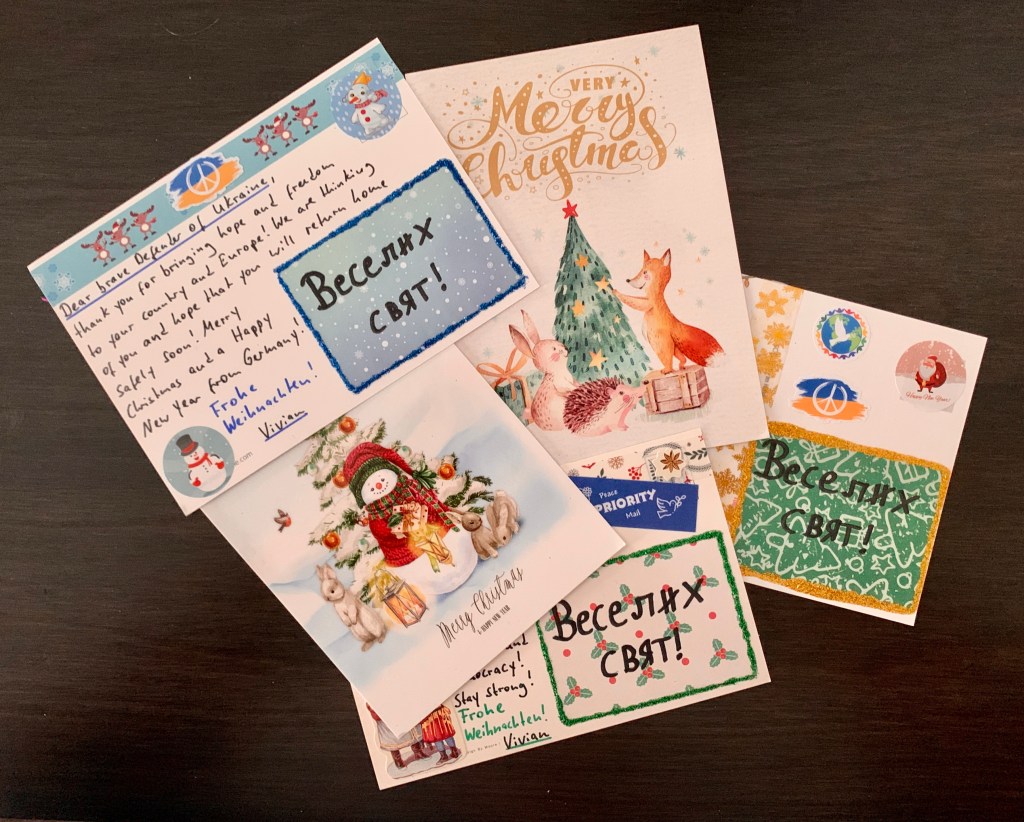 Dear brave Defender of Ukraine,
thank you for bringing hope and freedom
to your country and Europe! We are thinking
of you and hope that you will return home
safely soon! Merry
Christmas and a Happy
New Year from Germany!
Frohe
Weihnachten!
Vivian
.com
Веселих
свят!
VERY
Merry
Christmas
Merry Christmas
& HAPPY NEW YEAR
Peace
PRIORITY
Mail
Веселих
свят!
and
ocracy!
Stay strong!
Frohe
Weihnachten!
Vivian
Happy New Year
Веселих
свят!